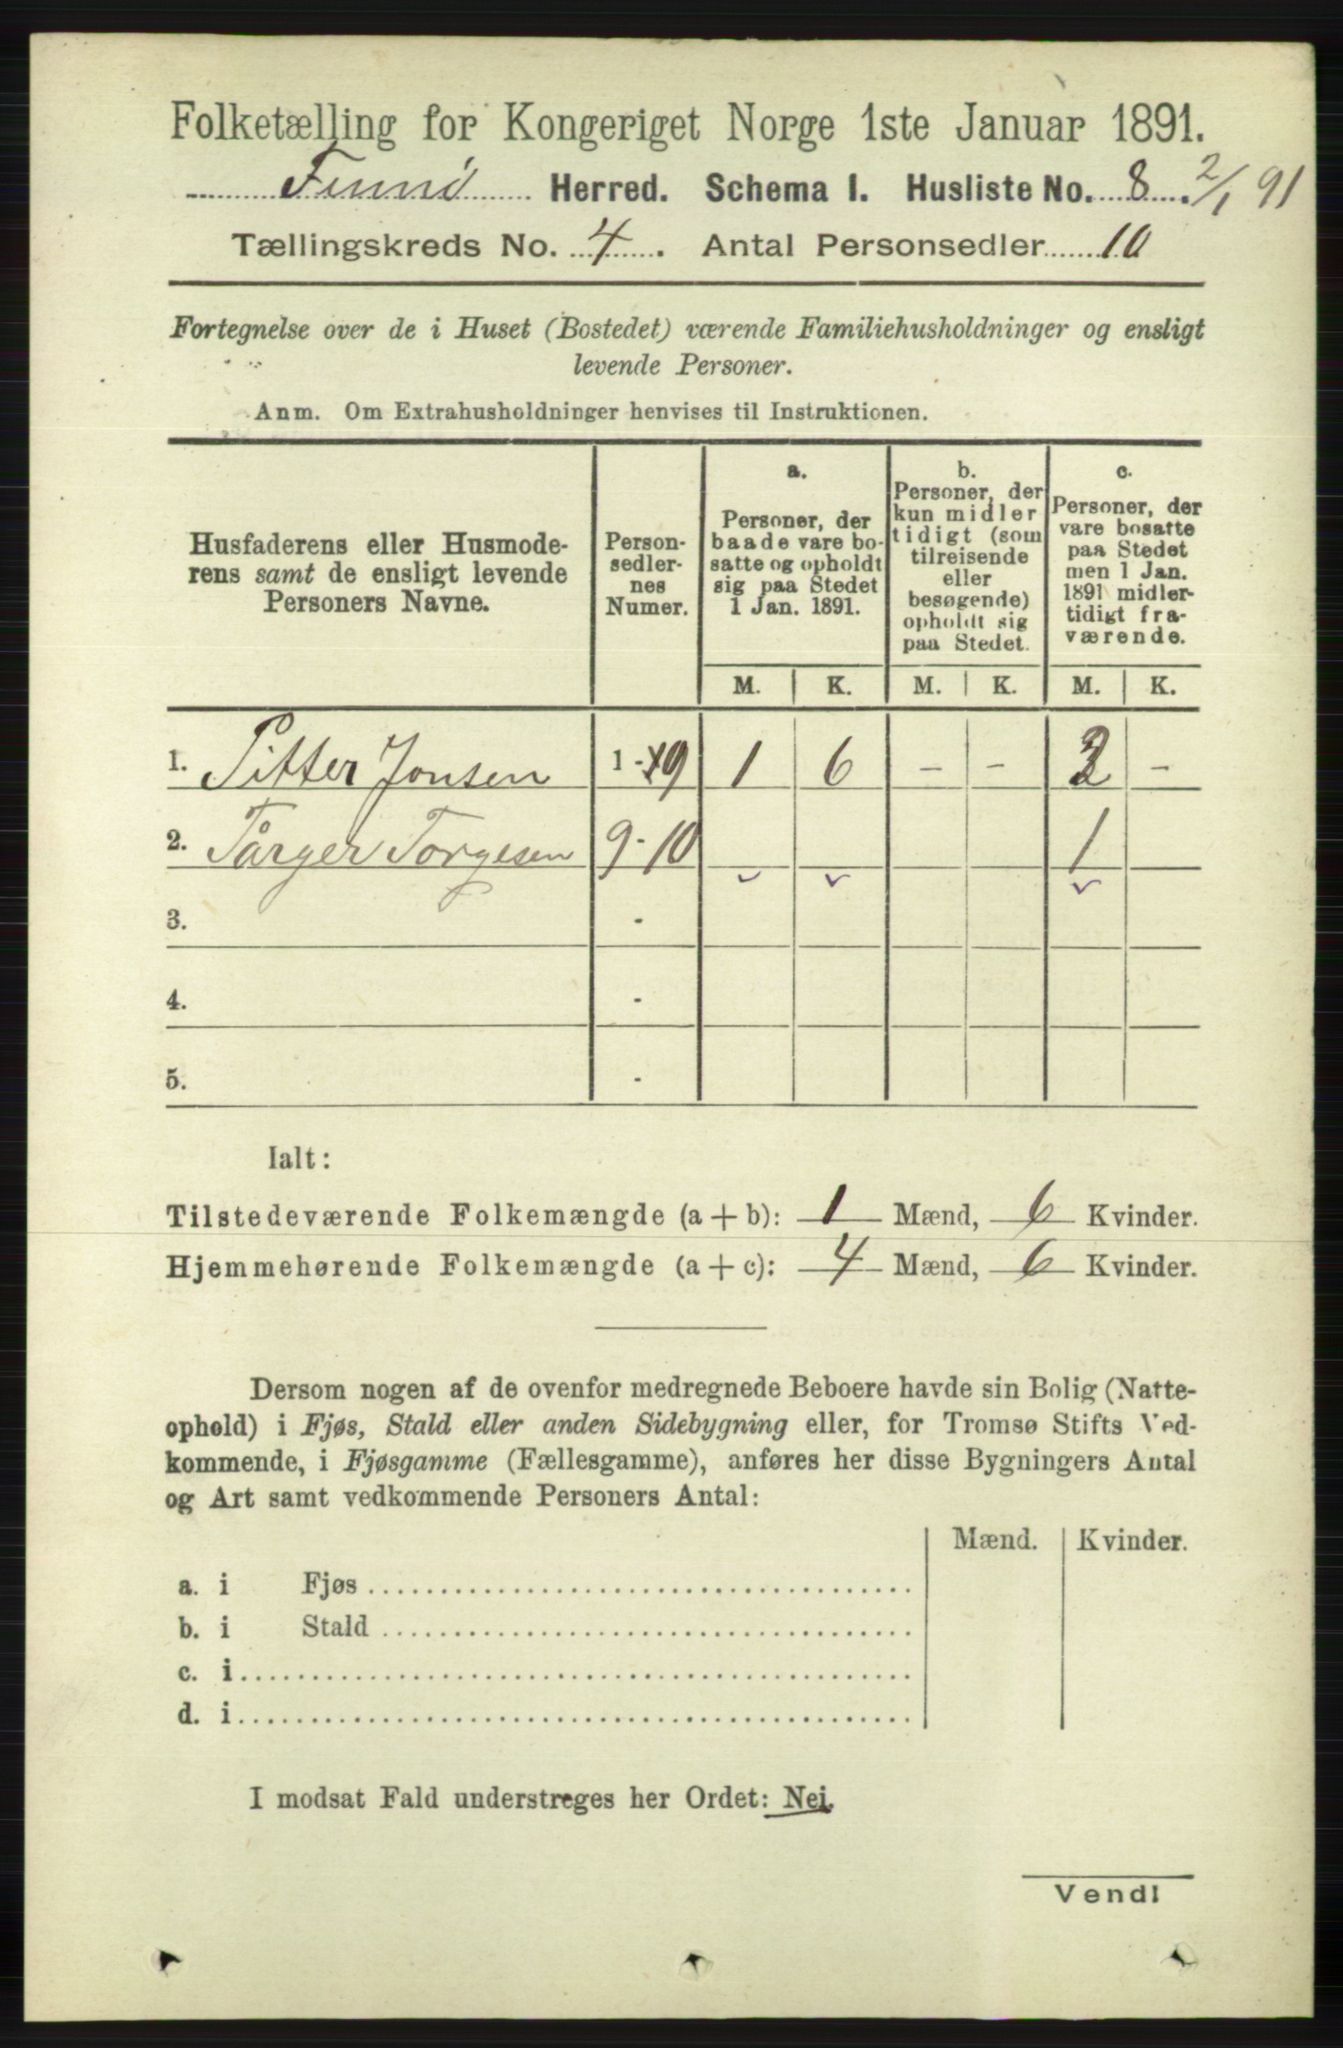 Folketælling for Kongeriget Norge 1ste Januar 1891.
Finnö Herred. Schema I. Husliste No. 8. 2/1 91
Tællingskreds No. 4. Antal Personsedler 10
Fortegnelse over de i Huset (Bostedet) værende Familiehusholdninger og ensligt
levende Personer.
Anm. Om Extrahusholdninger henvises til Instruktionen.
Husfaderens eller Husmode-
rens samt de ensligt levende
Personers Navne.
Person-
sedler-
nes
Numer.
a.
Personer, der
baade vare bo-
satte og opholdt
sig paa Stedet
1 Jan. 1891.
b.
Personer, der
kun midler
tidigt (som
tilreisende
eller
besøgende)
opholdt sig
paa Stedet.
c.
Personer, der
vare bosatte
paa Stedet
men 1 Jan.
1891 midler-
tidigt fra-
værende.
M. K. M. K. M. K.
1. Pitter Jonsen 1-9 1 6 - - 3 -
2. Tårger Torgesen 9-10 1
3. -
4. -
5. -
Ialt:
Tilstedeværende Folkemængde (a + b): 1 Mænd, 6 Kvinder.
Hjemmehørende Folkemængde (a + c): 4 Mænd, 6 Kvinder.
Dersom nogen af de ovenfor medregnede Beboere havde sin Bolig (Natte-
ophold) i Fjøs, Stald eller anden Sidebygning eller, for Tromsø Stifts Ved-
kommende, i Fjøsgamme (Fællesgamme), anføres her disse Bygningers Antal
og Art samt vedkommende Personers Antal:
Mænd. Kvinder.
a. i Fjøs
b. i Stald
c. i
d. i
I modsat Fald understreges her Ordet: Nei.
Vend!